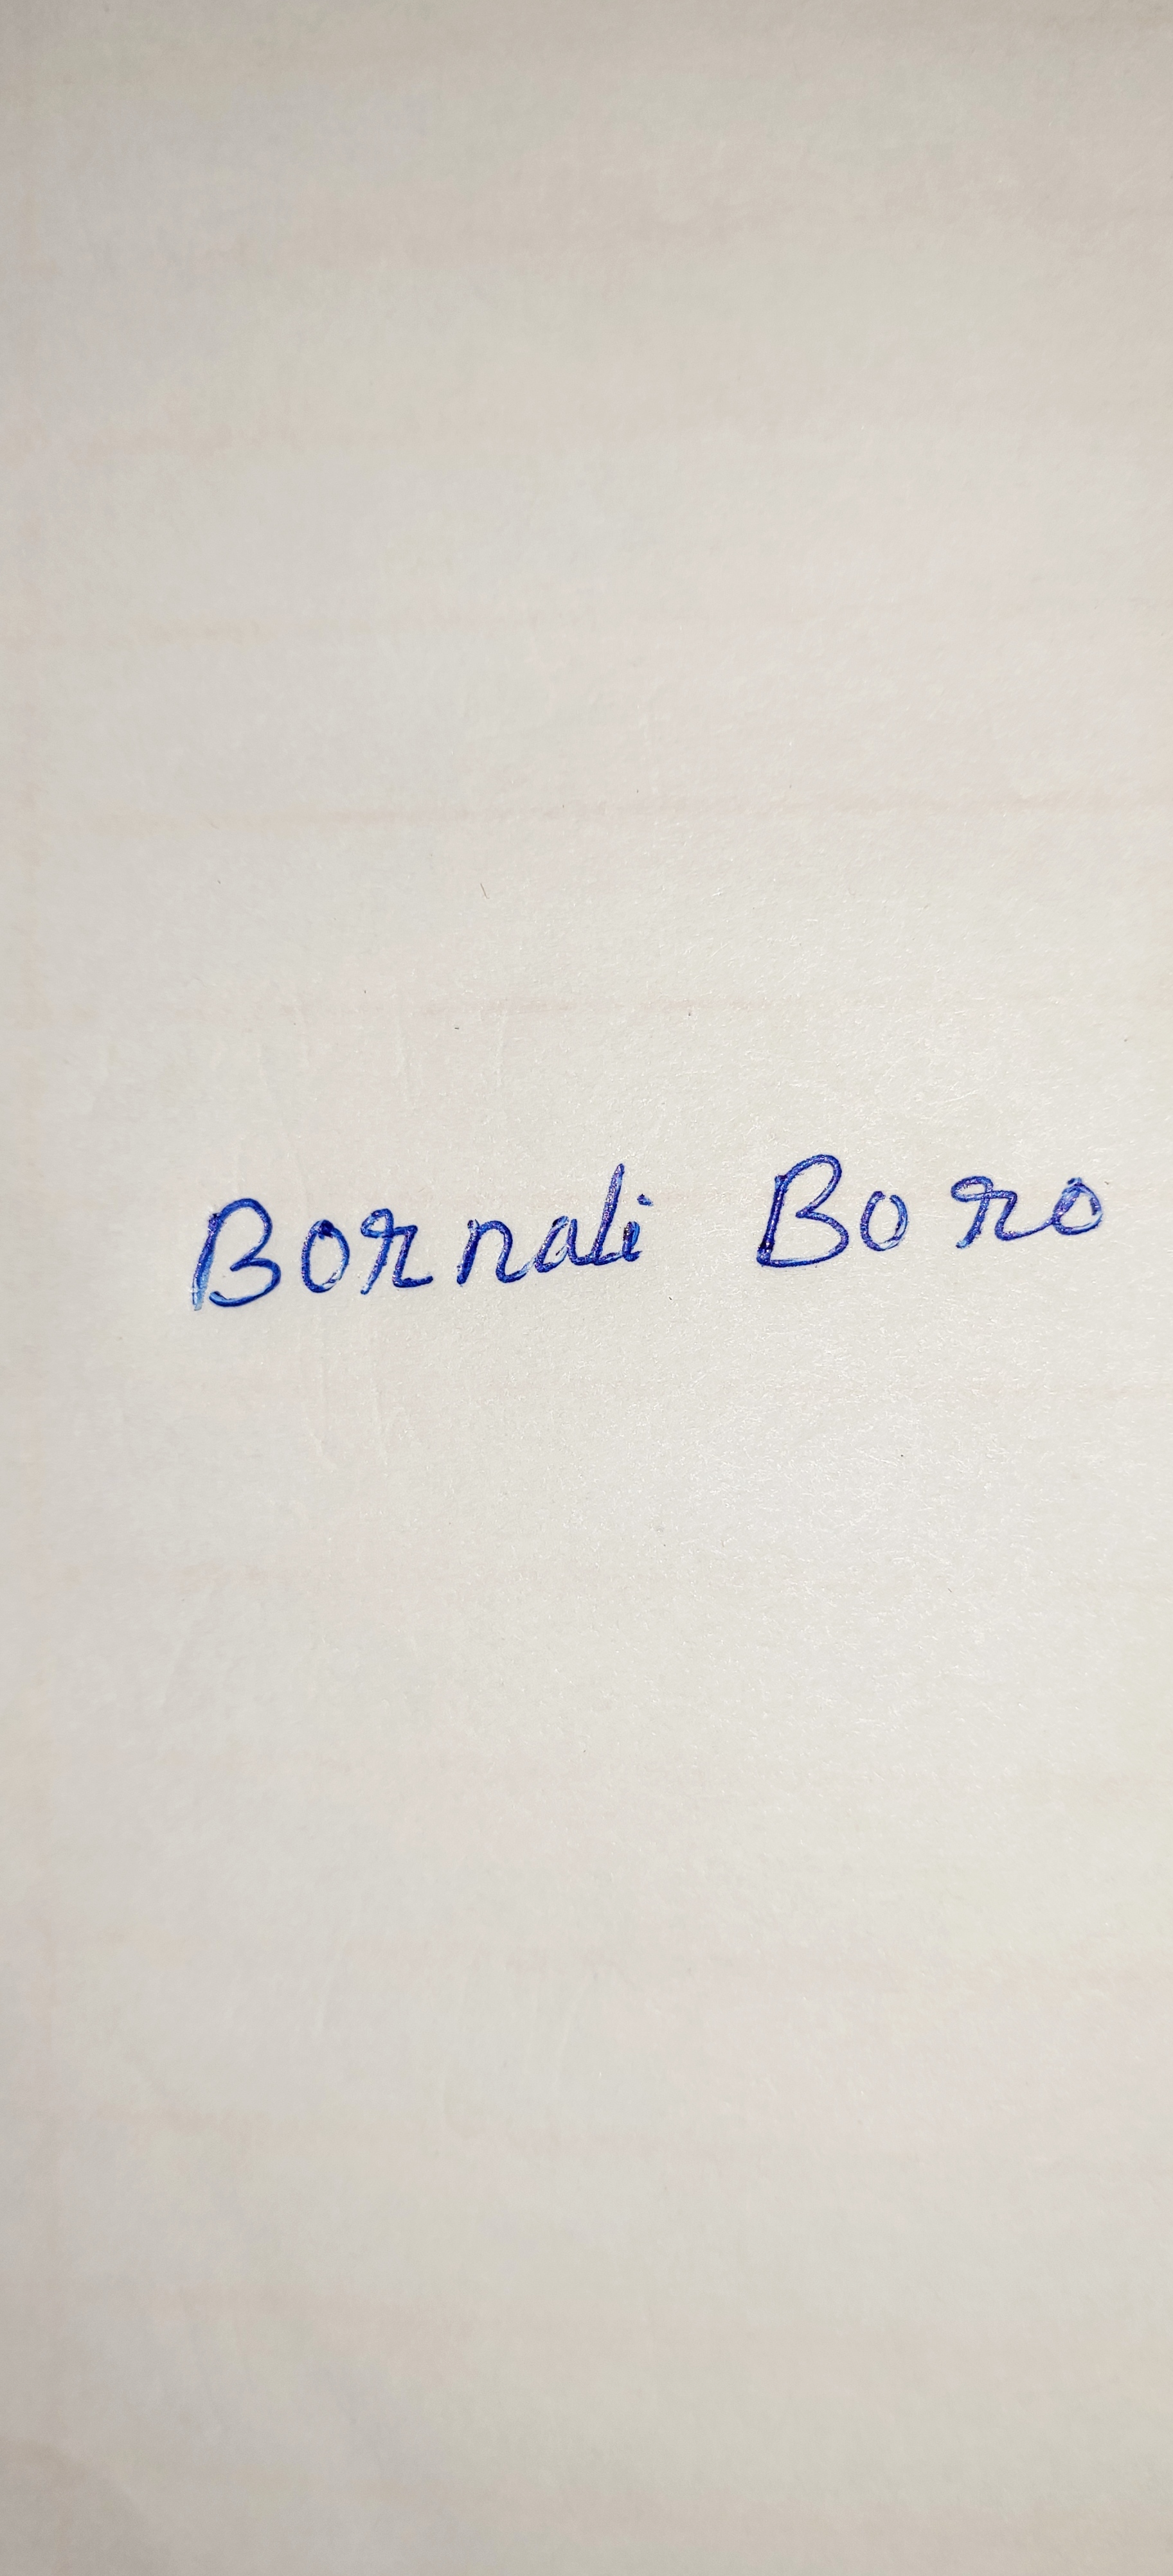 Bornali Boro